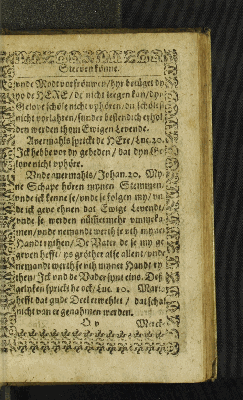 Stervenkunne.
vnde Modt vorfröuwen / hyr betüget dy
yo de HERE / de nicht leegen kan / dyn
Gelove schöle nicht vphören / du schölst
nicht vorlahren / sunder bestendich erhol-
den werden thom Ewigen Levende.
Avermahls spricht de HEre / Luc. 20.
Jck hebbe vor dy gebeden / dat dyn Ge-
love nicht vphöre.
Vnde avermahls / Johan. 20. My-
ne Schape hören mynen Stemmen /
vnde ick kenne se / vnde se folgen my / vn-
de ick geve ehnen dat Ewige Levent /
vnde se werden nümmermehr vmmeka-
men / vnde nemandt werth se vth myner
Handt rythen / De Vader de se my ge-
geven hefft / ys gröther alse allent / vnde
nemandt werth se vth mynes Handt ry-
then / Jck vnd de Vader synt eins. Des-
gelyken spricht he ock / Luc. 10. Maria
hefft dat gude Deel erwehlet / dat schal
nicht van er genahmen werden.
O v Merck-